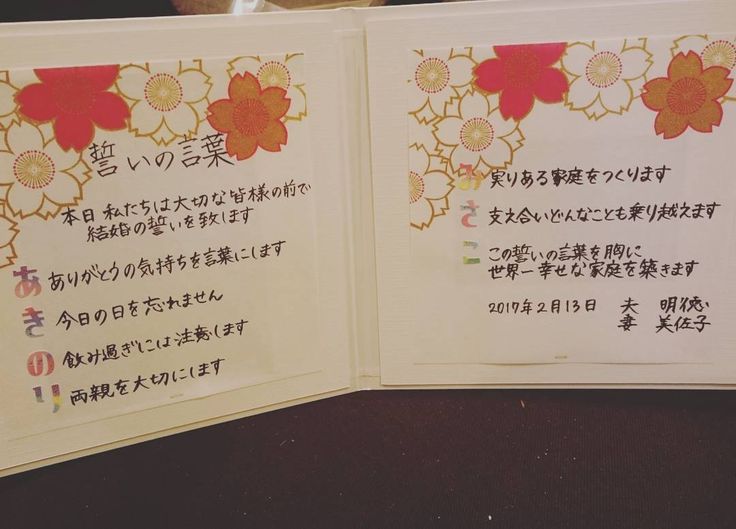 誓いの言葉
本日 私たちは大切な皆様の前で
結婚の誓いを致します
あ ありがとうの気持ちを言葉にします
き 今日の日を忘れません
の 飲み過ぎには注意します
り 両親を大切にします
み 実りある家庭をつくります
さ 支え合いどんなことも乗り越えます
こ この誓いの言葉を胸に
世界一幸せな家庭を築きます
2017年2月13日 夫 明徳
妻 美佐子